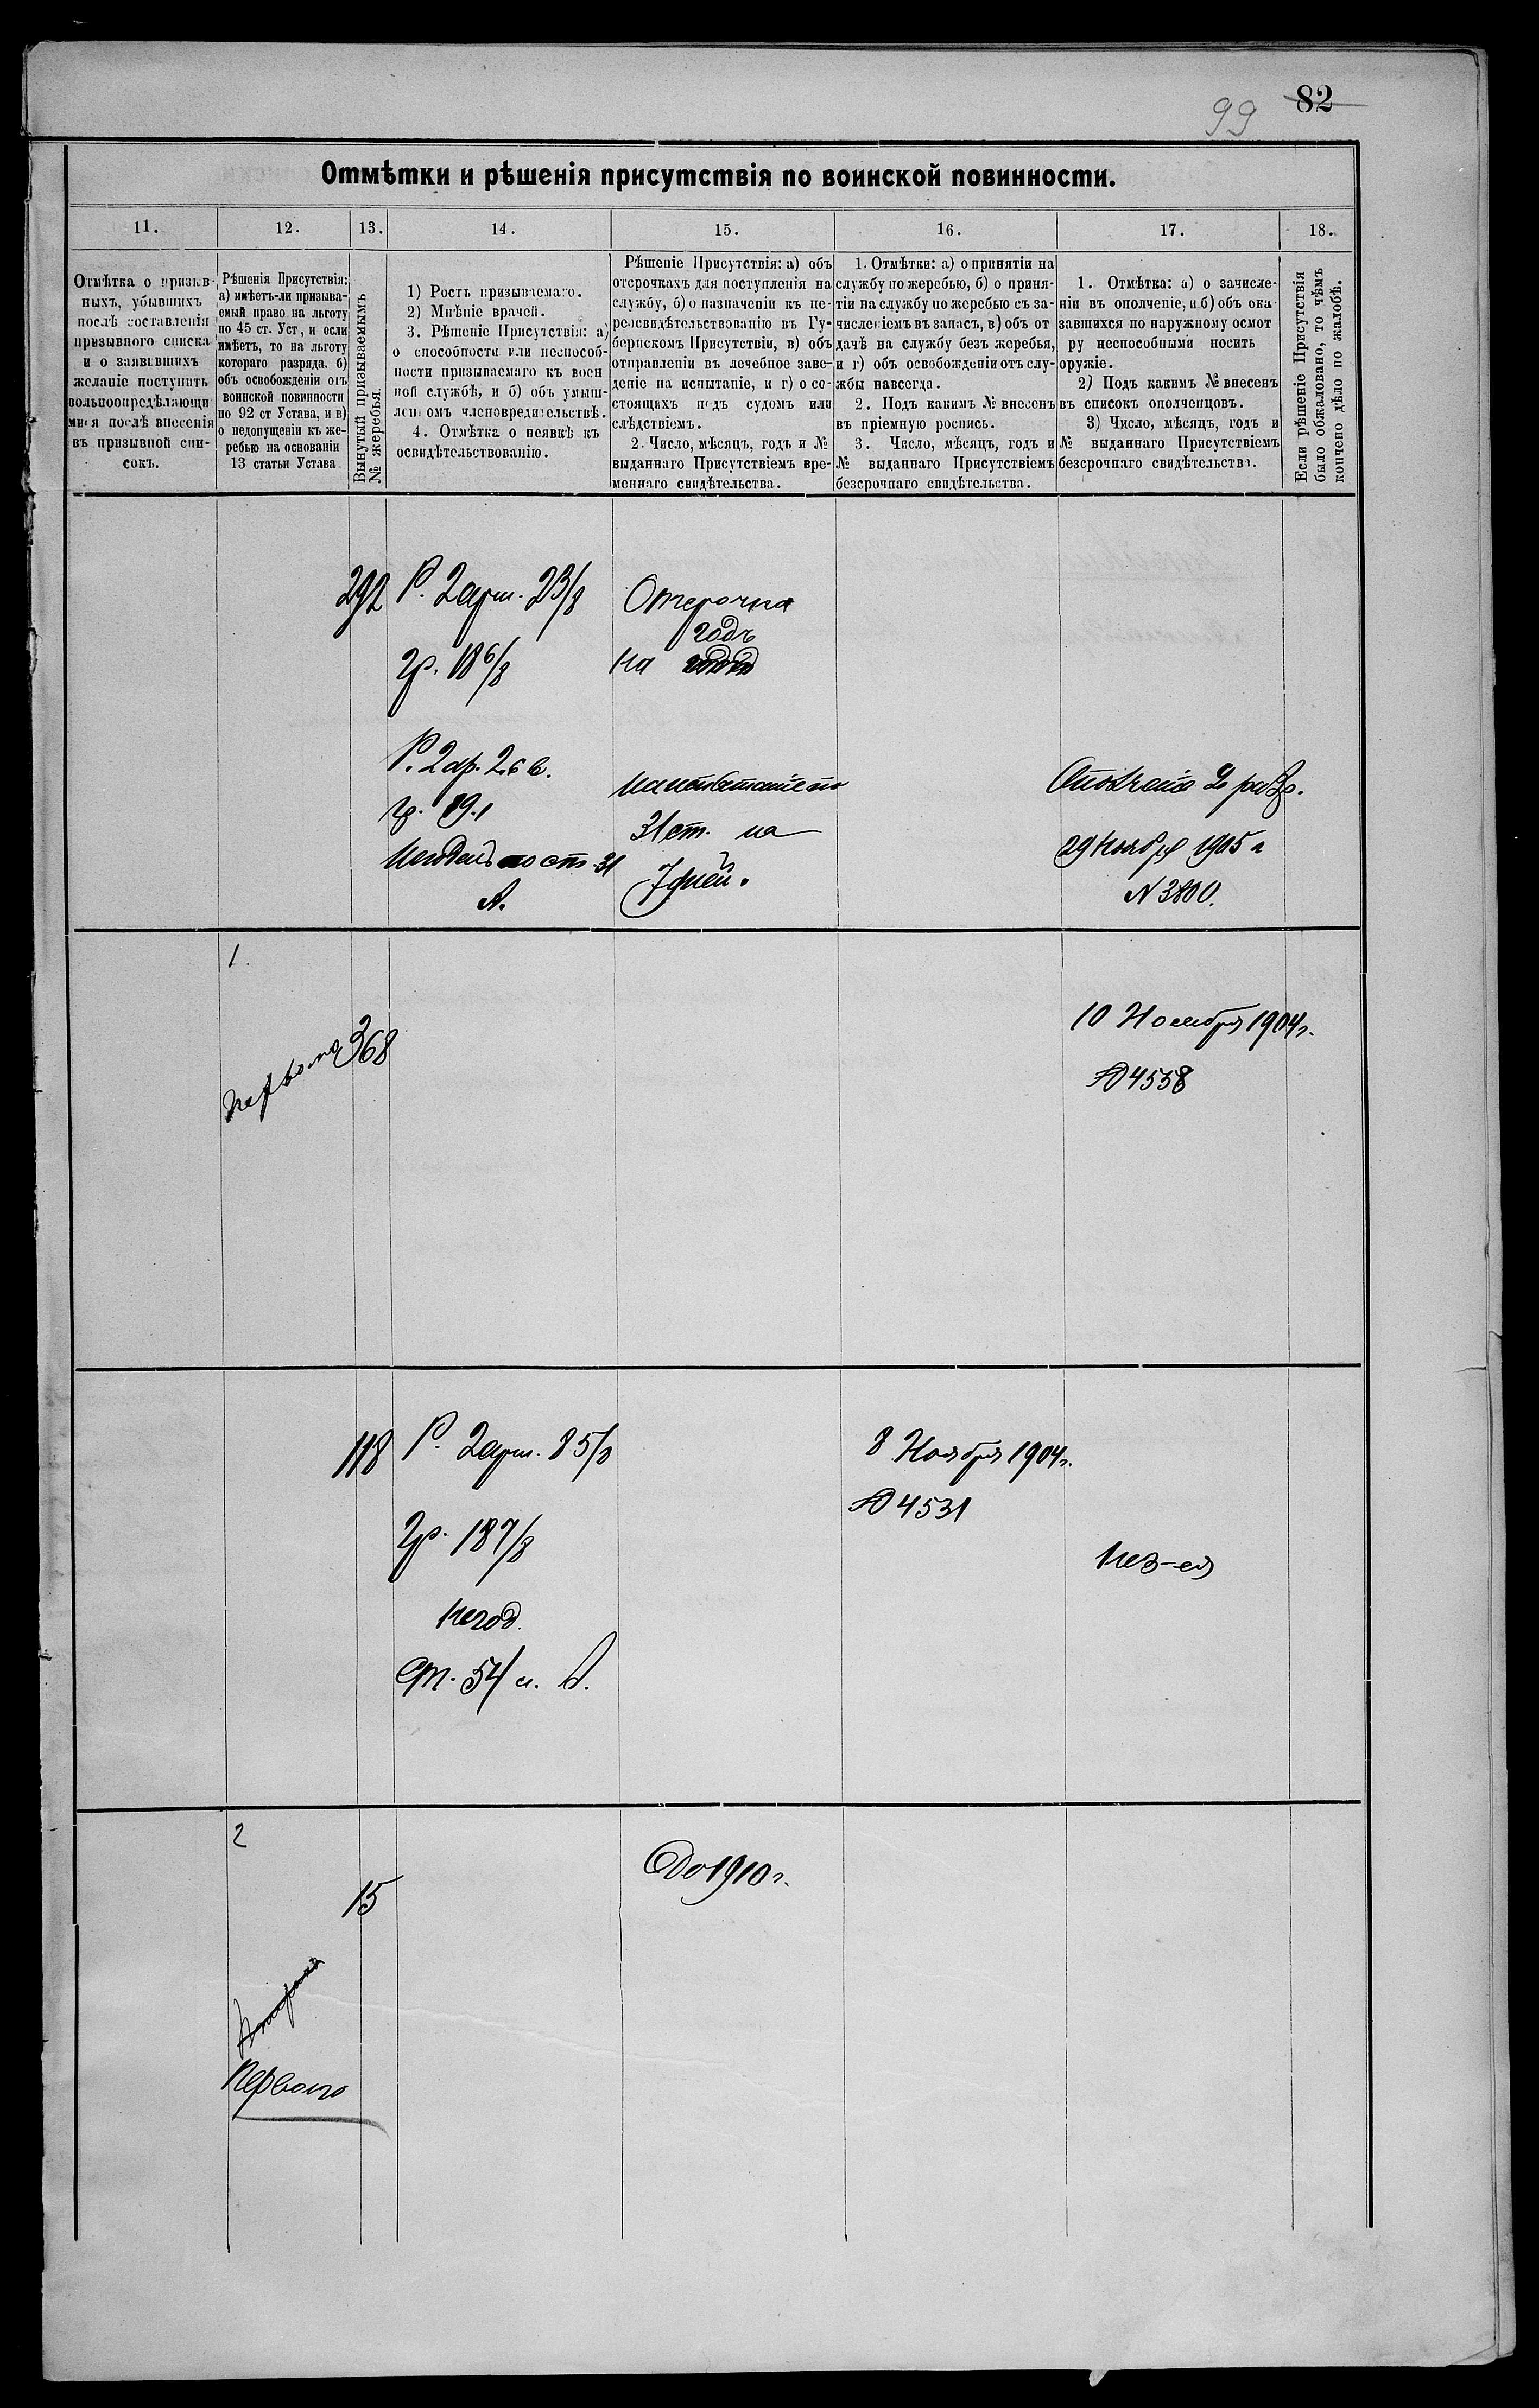 99 82
Отмѣтки и рѣшенія присутствія по воинской повинности.
11. 12. 13. 14. 15. 16. 17. 18.
Отмѣтка о призыв-
ныхъ, убывшихъ
послѣ составленія
призывного списка
и о заявившихъ
желаніе поступить
вольноопредѣляющи
мися послѣ внесенія
въ призывной спи-
сокъ.
Рѣшенія Присутствія:
а) имѣетъ-ли призыва-
емый право на льготу
по 45 ст. Уст, и если
имѣетъ, то на льготу
котораго разряда. б)
объ освобожденіи отъ
воинской повинности
по 92 ст Устава, и в)
о недопущеніи къ же-
ребью на основаніи
13 статьи Устава
Вынутый призываемымъ
№ жеребья.
1) Ростъ призываемаго.
2) Мнѣніе врачей.
3. Рѣшеніе Присутствія: а)
о способности или неспособ-
ности призываемаго къ воен
ной службѣ, и б) объ умыш-
ленномъ членовредительствѣ.
4. Отмѣтка о неявкѣ къ
освидѣтельствованію.
Рѣшеніе Присутствія: а) объ
отсрочкахъ для поступленія на
службу, б) о назначеніи къ пе-
реосвидѣтельствованію въ Гу-
бернскомъ Присутствіи, в) объ
отправленіи въ лечебное заве-
деніе на испытаніе, и г) о со-
стоящахъ подъ судомъ или
слѣдствіемъ.
2. Число, мѣсяцъ, годъ и №
выданнаго Присутствіемъ вре-
меннаго свидѣтельства.
1. Отмѣтки: а) о принятіи на
службу по жеребью, б) о приня-
тіи на службу по жеребью съ за-
численіемъ въ запасъ, в) объ от
дачѣ на службу безъ жеребья,
и г) объ освобожденіи отъ слу-
жбы навсегда.
2. Подъ какимъ № внесенъ
въ пріемную роспись.
3. Число, мѣсяцъ, годъ и
№ выданнаго Присутствіемъ
безсрочнаго свидѣтельства.
1. Отмѣтка: а) о зачисле-
ніи въ ополченіе, и б) объ ока
завшихся по наружному осмот
ру неспособными носить
оружіе.
2) Подъ какимъ № внесенъ
въ списокъ ополченцовъ.
3) Число, мѣсяцъ, годъ и
№ выданнаго Присутствіемъ
безсрочнаго свидѣтельства.
Если рѣшеніе Присутствія
было обжаловано, то чѣмъ
кончено дѣло по жалобѣ.
292
Р. 2 арш. 23/8
гр. 18 6/8
Р. 2 ар. 2.6 в.
гр. 19.1
Негоденъ по ст. 31
А.
Отсрочка
годъ
на
31 ст. на
7 дней.
Ополченіе 2 разр.
29 Ноября 1905 г
N 3800.
1.
Перваго
368
10 Ноября 1904 г.
№ 4558
118
Р. 2 арш. 8 5/8
гр. 18 7/8
негод.
Ст. 54 л. А.
8 Ноября 1904 г.
№ 4531
2
15
Втораго
Перваго
До 1910 г.